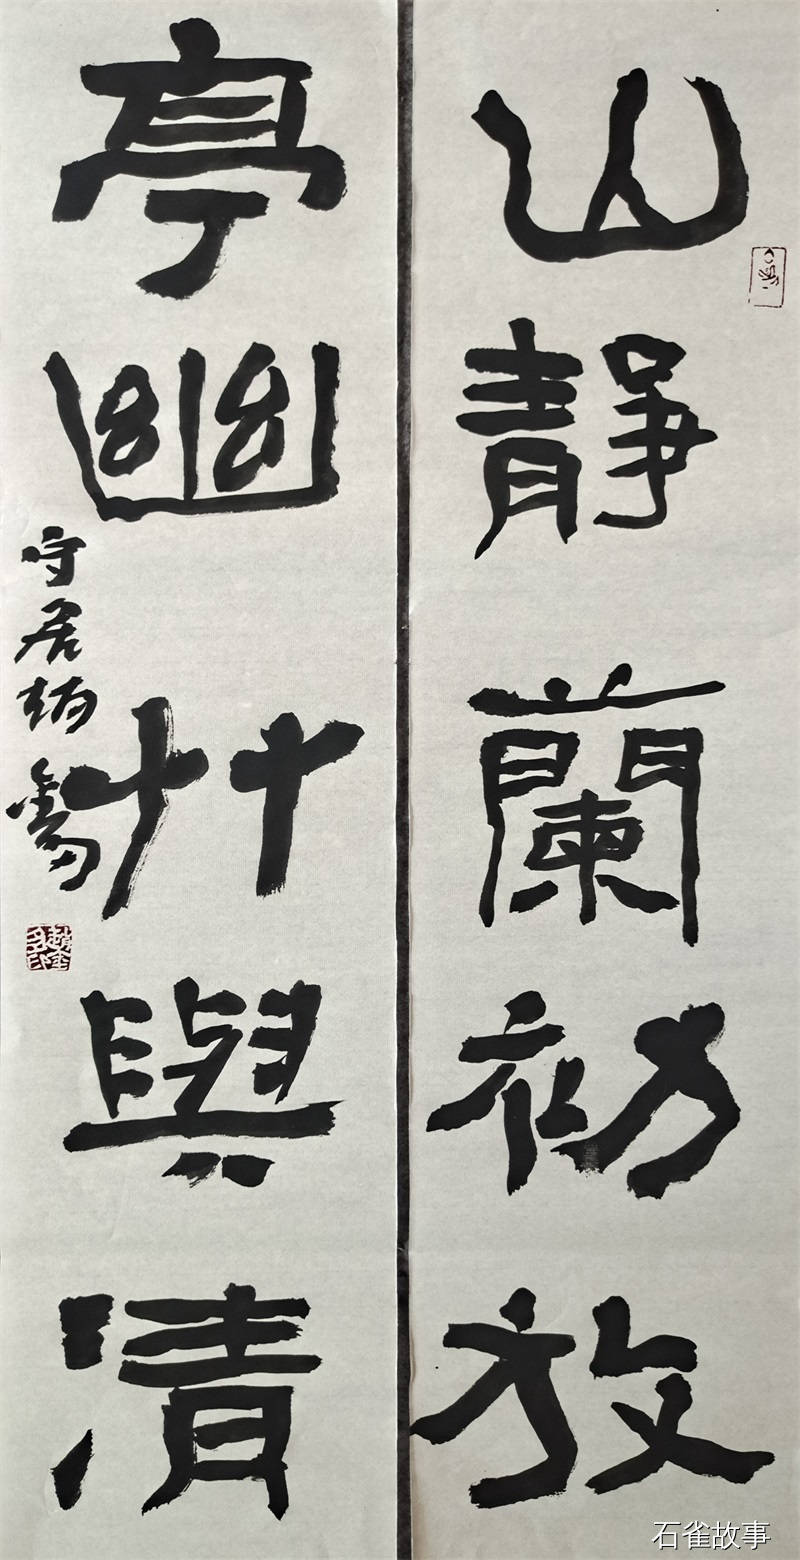 山靜蘭初放
亭幽艸與清
守居炳
石雀故事